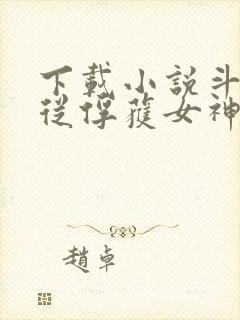 下載小說斗
從俘獲女神
趙卓